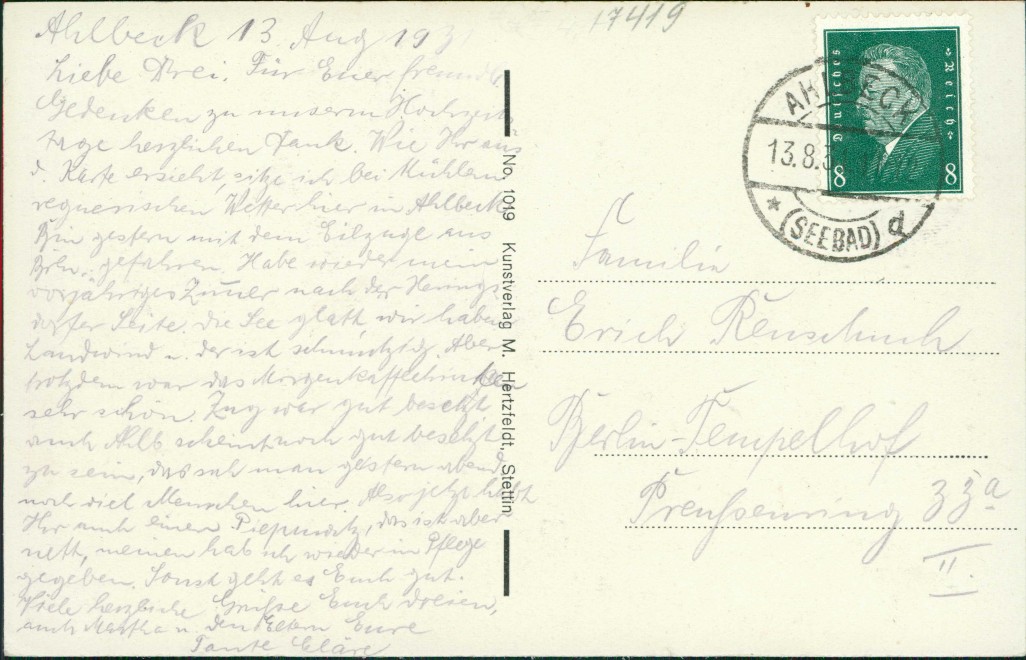 17419
Ahlbeck 13. Aug 193
Liebe Drei. Für Euer freundl.
Gedenken zu unserm Hochzeits
tage herzlichen Dank. Wie Ihr aus
d. Karte ersieht, sitze ich bei Mühlen
regnerischen Wetter hier in Ahlbeck
Bin gestern mit dem Eilzuge aus
Brln. gefahren. Habe wieder mein
vorjähriges Zimer nach der Herings
dorfer Seite. Die See glatt, wir haben
Landwind u. der ist schmutzig. Aber
trotzdem war das Morgenkaffeetrinken
sehr schön. Zug war gut besetzt
auch Ahlb scheint noch gut besetzt
zu sein, das sah man gestern abend
noch viel Menschen hier. Also jetzt habt
Ihr auch einen Piepmatz, das ist aber
nett, meinen hab ich wieder in Pflege
gegeben. Sonst geht es Euch gut.
Viele herzliche Grüße Euch dreien,
auch Martha u. den Eltern Eure
Tante Cläre
No. 1019 Kunstverlag M. Hertzfeldt, Stettin
Deutsches Reich
8 8
AHLBECK
13.8.3
(SEEBAD) d
Familie
Erich
Berlin-Tempelhof
Preußenring 33a
II.